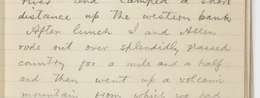 river and camped a short
distance up the western bank.
After lunch I and Allen
rode out over splendidly grassed
country for a mile and a half
and then went up a volcanic
mountain from which we had